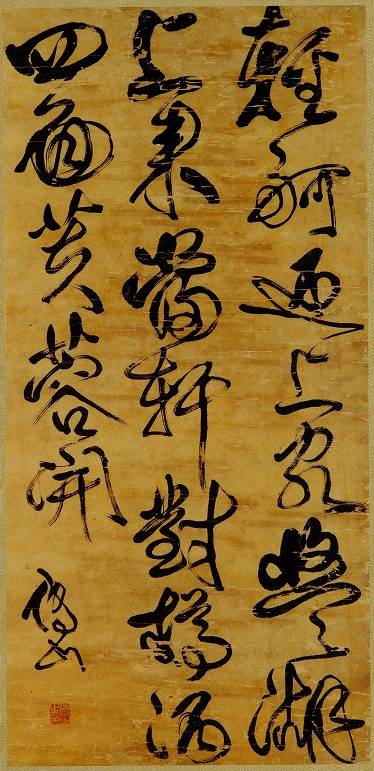 輕舸迎上客悠〻湖
上來當軒對樽酒
四面芙蓉開
傅山